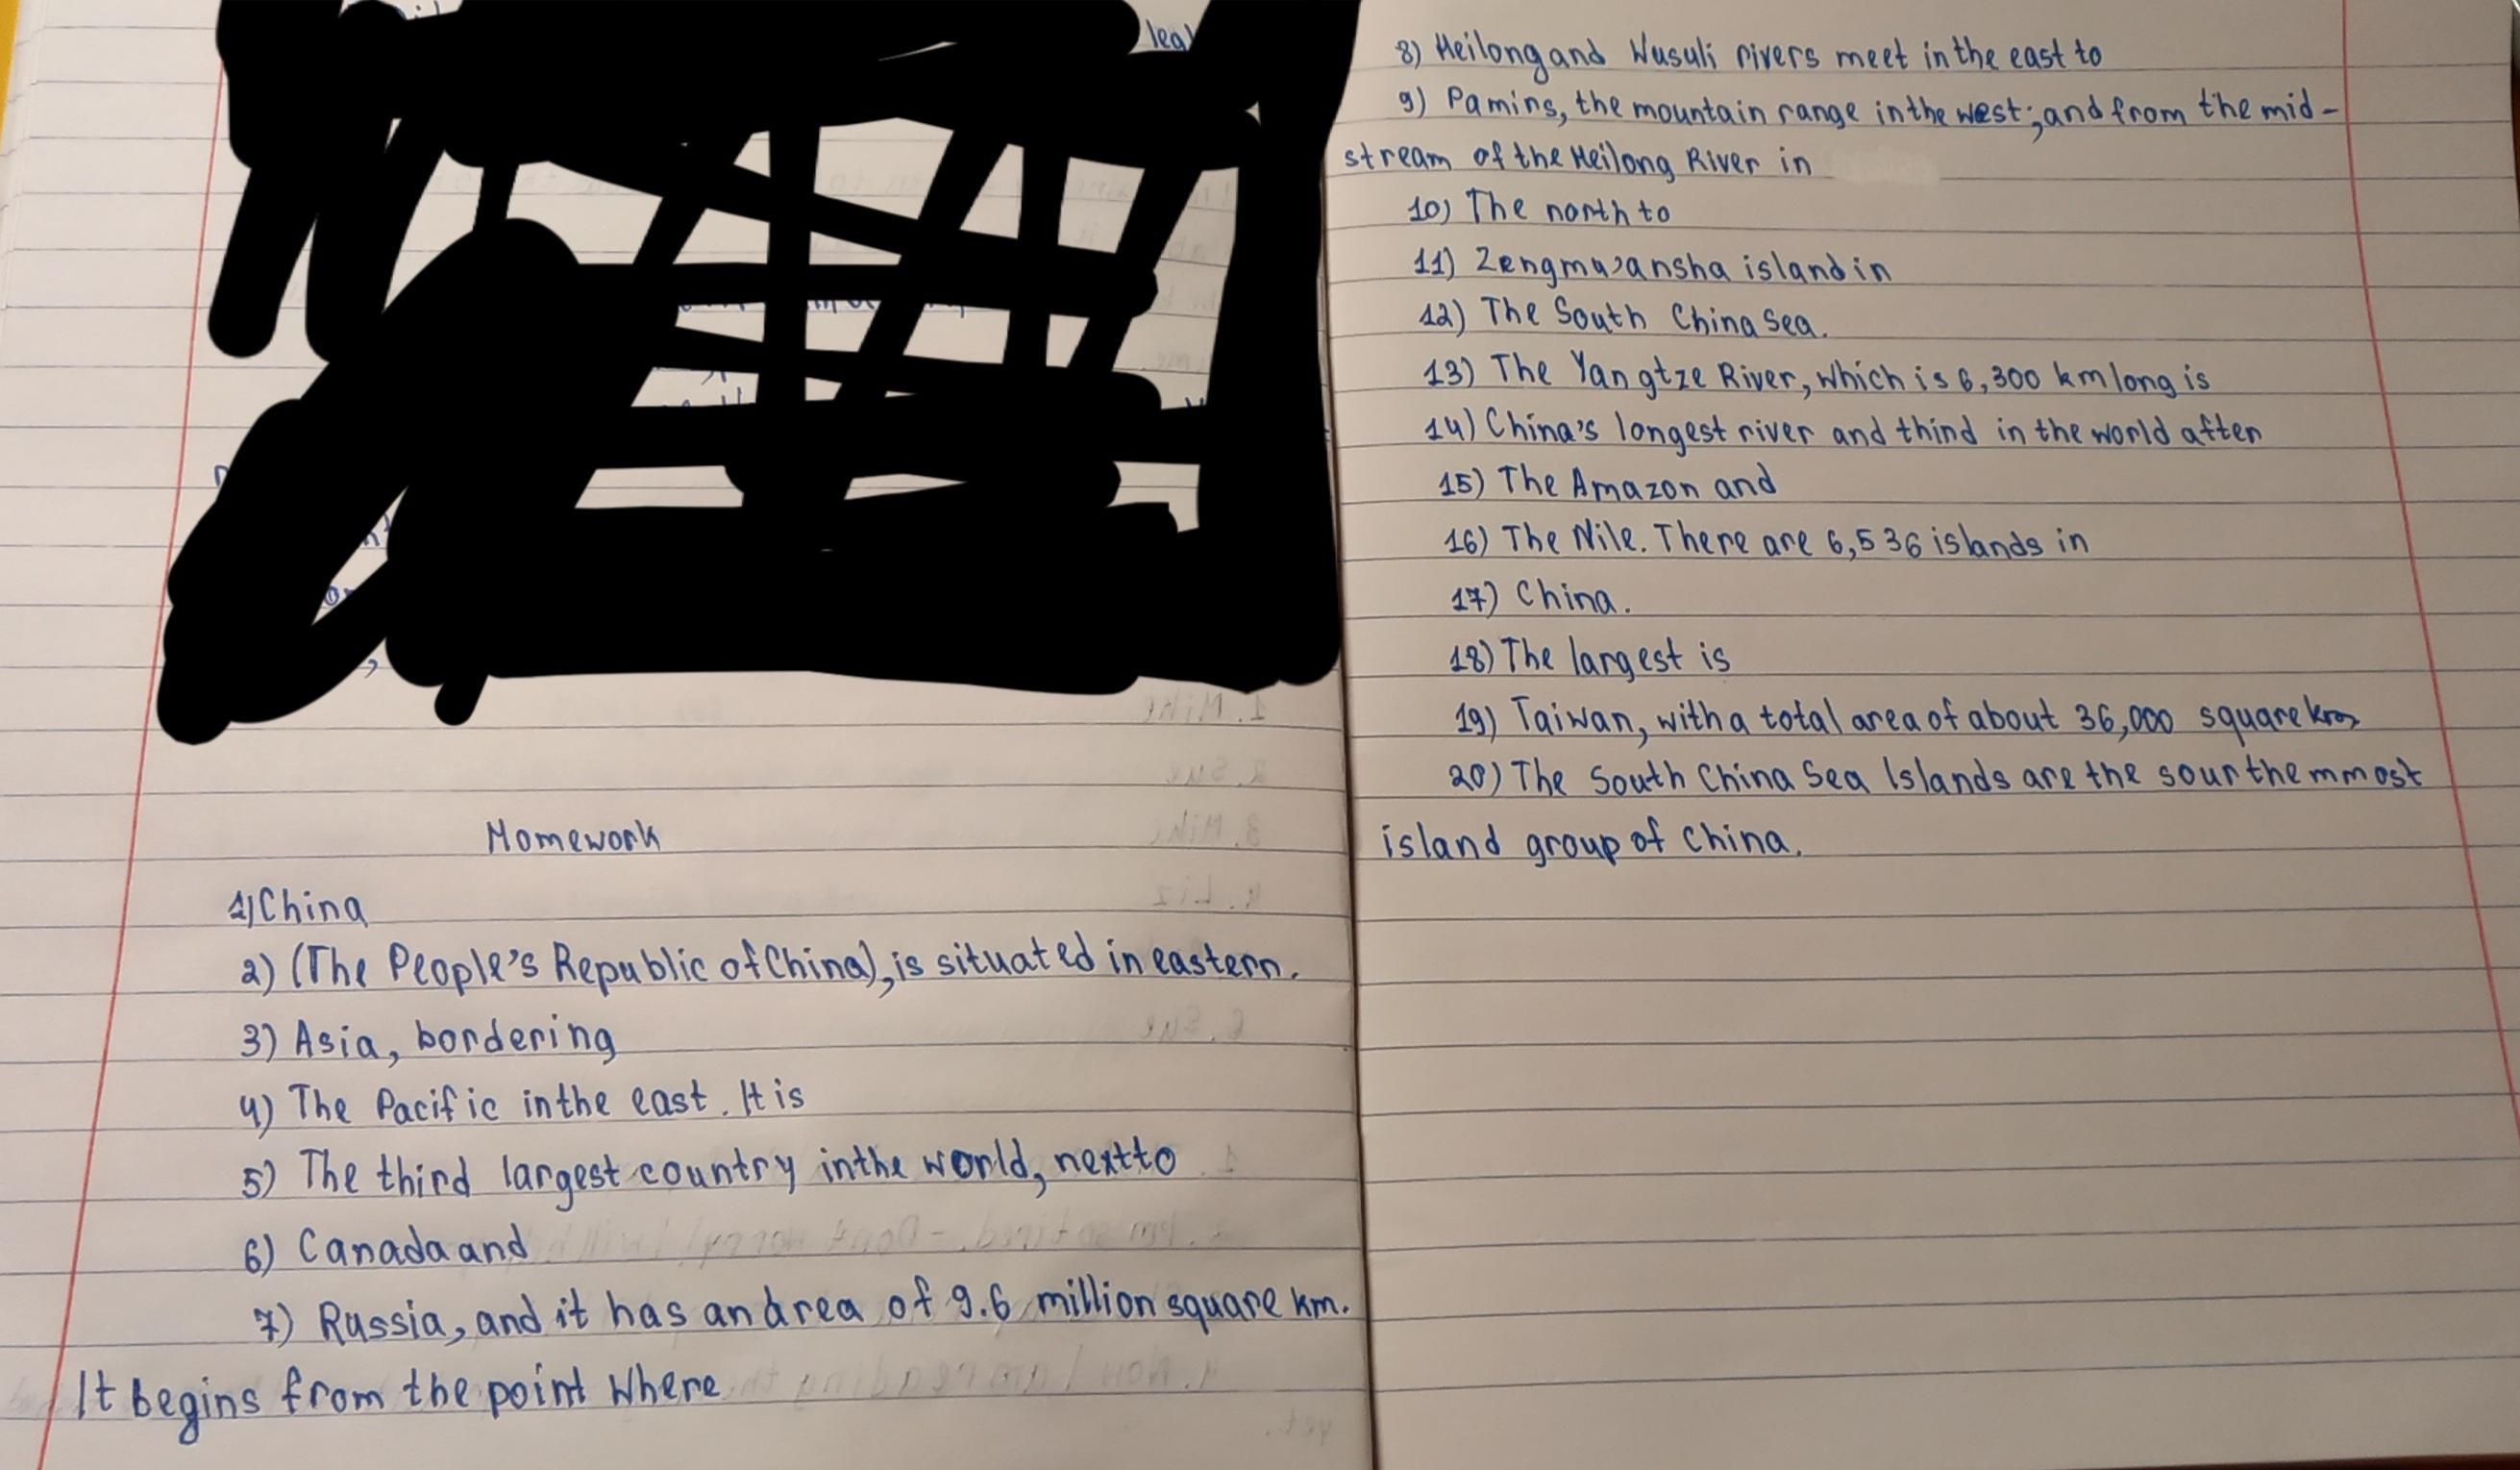 leg
Homework
1) China
2) (The People's Republic of China), is situated in eastern.
3) Asia, bordering
4) The Pacific in the east. It is
5) The third largest country in the world, next to
6) Canada and
7) Russia, and it has an area of 9.6 million square km.
It begins from the point where
8) Heilong and Wusuli rivers meet in the east to
9) Pamirs, the mountain range in the west; and from the mid-
stream of the Heilong River in
10) The north to
11) Zengmu'ansha island in
12) The South China Sea.
13) The Yangtze River, which is 6,300 km long is
14) China's longest river and third in the world after
15) The Amazon and
16) The Nile. There are 6,536 islands in
17) China.
18) The largest is
19) Taiwan, with a total area of about 36,000 square km
20) The South China Sea Islands are the sourthemmost
island group of China.